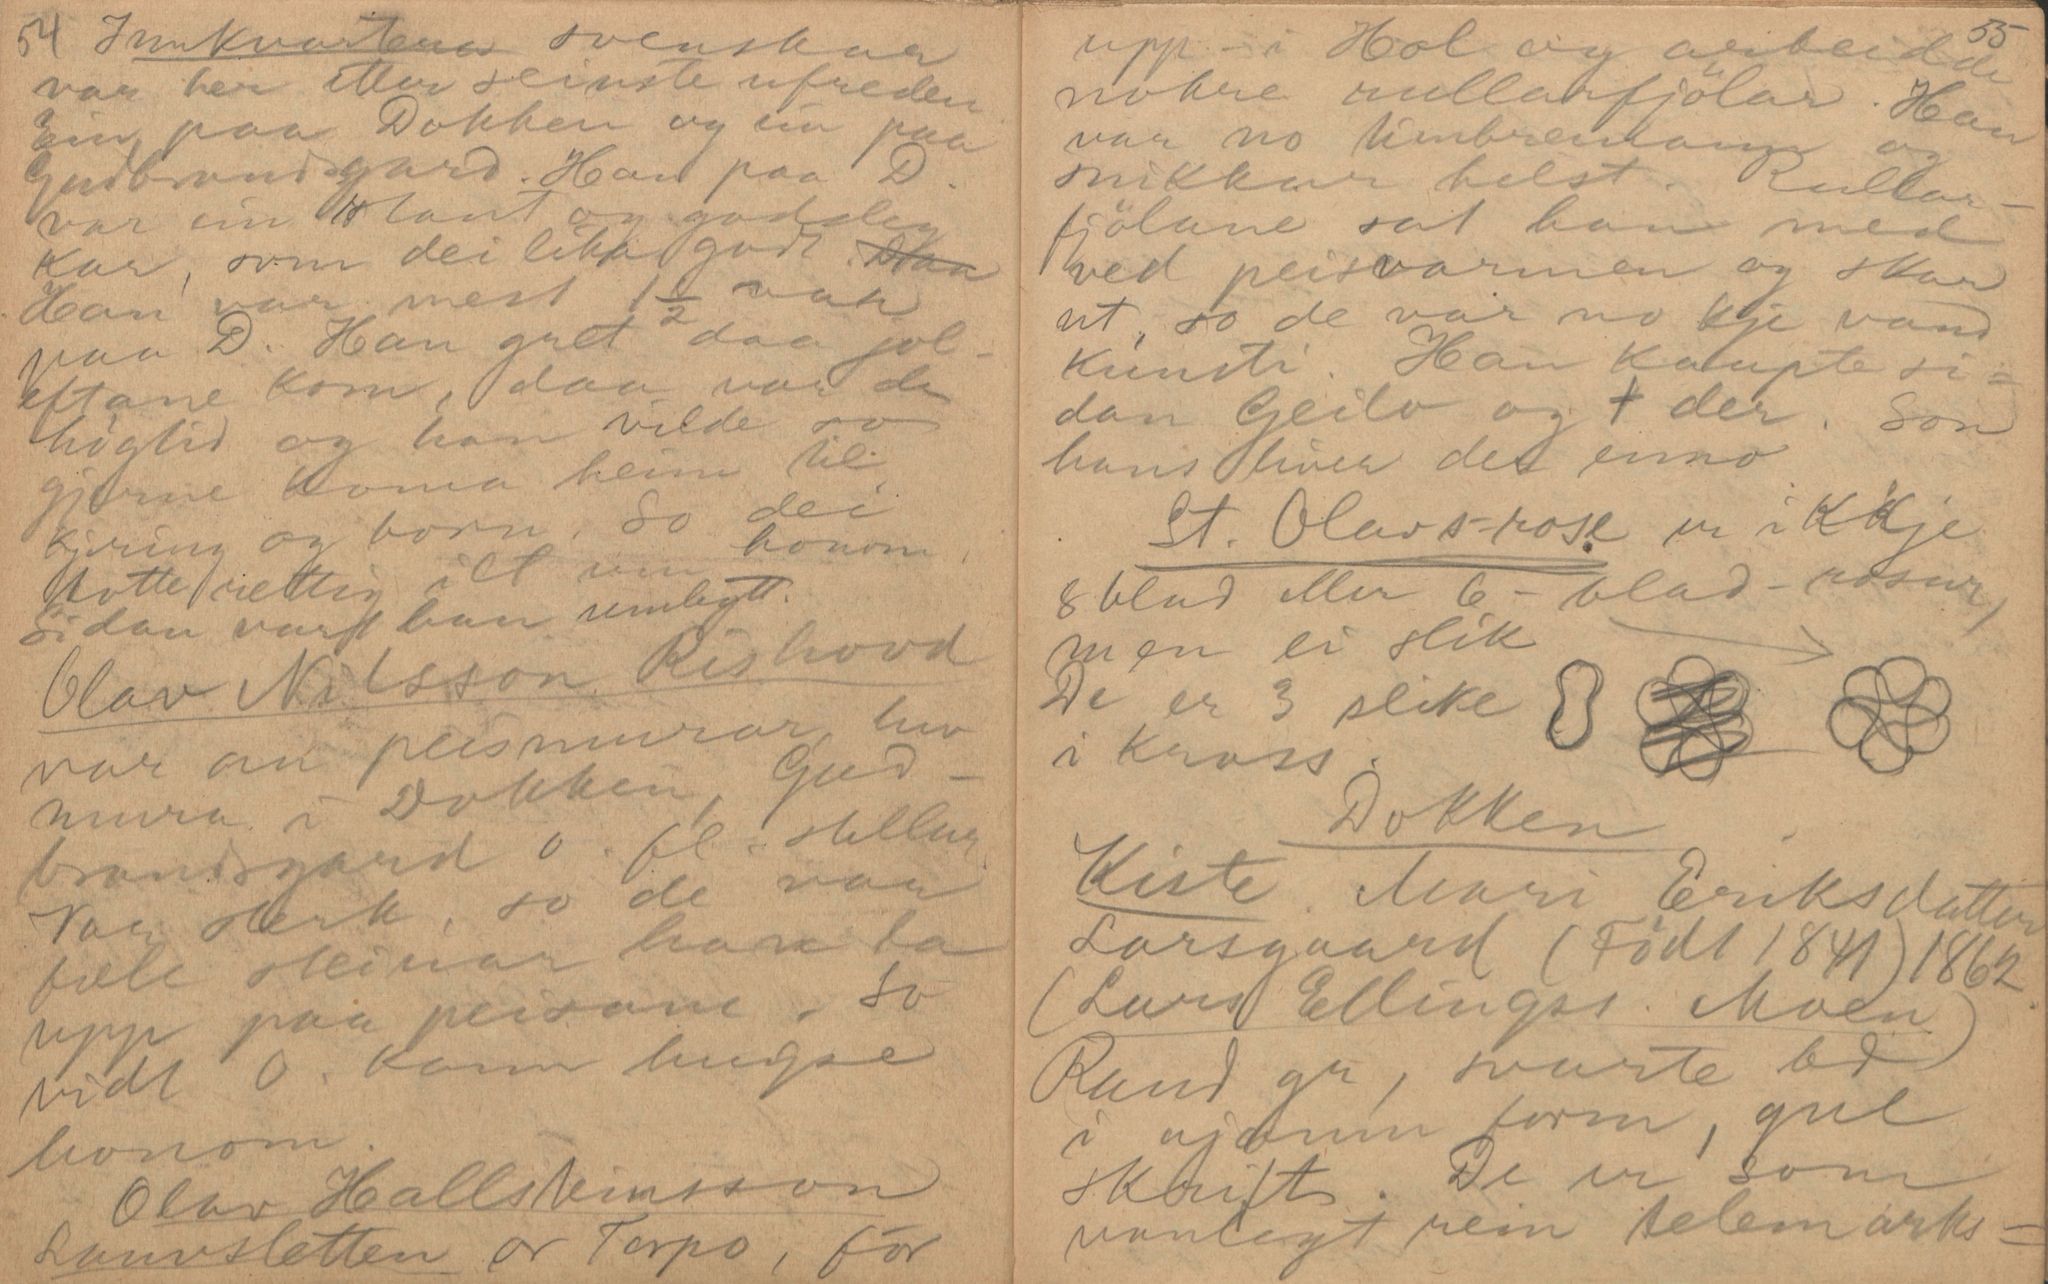 54 Innkvartera svenskar
var her etter seinste ufreden
Ein paa Dokken og ein paa
Gudbrandsgard. Han paa D.
var ein staut og godsleg
Kar, som dei lika godt. Daa
Han var mest 1 1/2 aar
paa D. Han gret daa jol-
eftane kom, daa var de
høgtid og han vilde so
gjerne koma heim til
kjering og born. So dei
totte rettig ilt um honom.
Sidan vart han umbytt.
Olav Nilsson Rishovd
var ein peismurar, hev
mura i Dokken, Gud-
brandsgard o. fl. stellur.
Var sterk, so de var
fæle steinar han ha
upp paa peisane. So
vidt O. kann hugse
honom.
Olav Hallsteinsson
Lauvsletten or Torpo, för
55
upp i Hol og arbeidde
nokre rullarfjölar. Han
var no timbremann og
snikkar helst. Rullar-
fjölane sat han med
ved peisvarmen og skar
ut, so de var no kje vand
kunsti. Han kaupte si-
dan Geilo og + der. Son
hans liver der enno
St. Olavs-rose er ikkje
8 blad eller 6-blad-rosur,
men ei slik
De er 3 slike
i kross.
Dokken
Kiste Mari Eriksdatter
Larsgaard (Födt 1841) 1862.
(Lars Ellingss. Moen)
Raud gr, svarte bd
i ujamn form, gul
skrift. De er som
vanlegt rein telemarks=